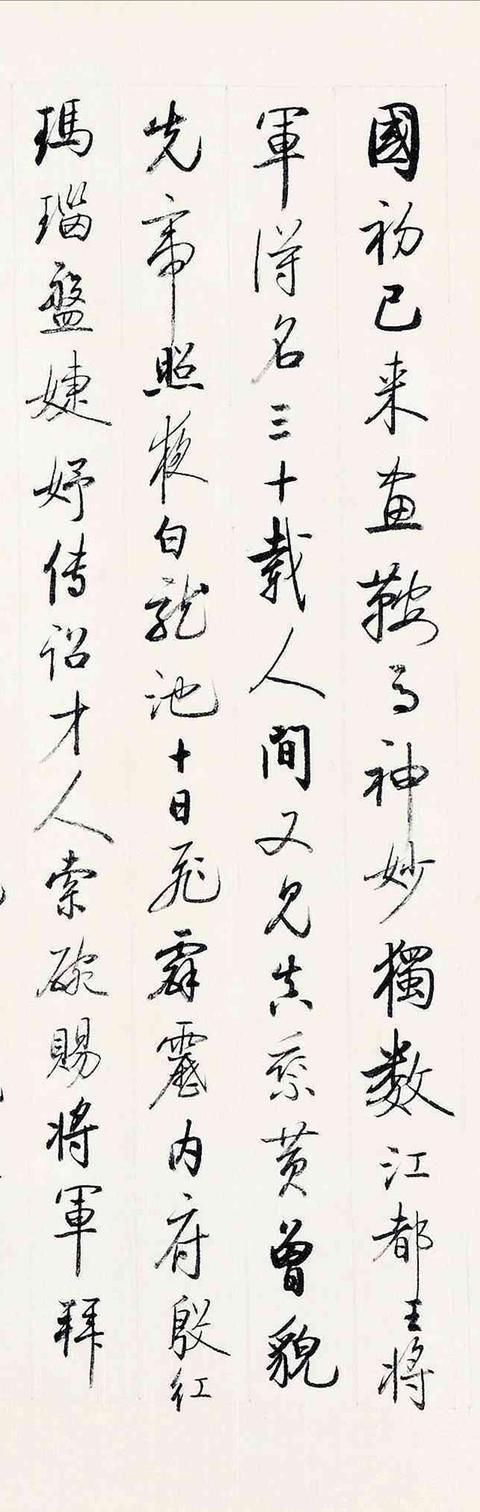 國初已来畫鞍馬神妙獨數江都王將
軍得名三十載人間又見真乘黄曾貌
先帝照夜白龍池十日飛霹靂内府殷红
瑪瑙盤婕妤傳詔才人索碗賜將軍拜